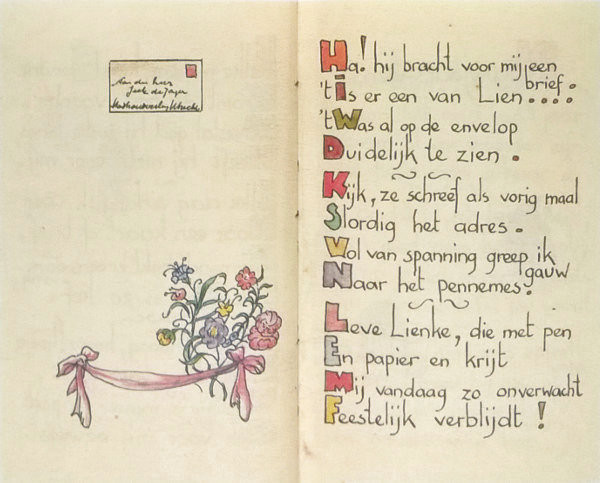 Aan den Heer
Jack de Jager
Ha! hij bracht voor mij een
brief:
't is er een van Lien ....
't Was al op de envelop
Duidelijk te zien.
Kijk, ze schreef als vorig maal
Slordig het adres.
Vol van spanning greep ik
gauw
Naar het pennemes.
Leve Lienke, die met pen
En papier en krijt
Mij vandaag zo onverwacht
Feestelijk verblijdt!